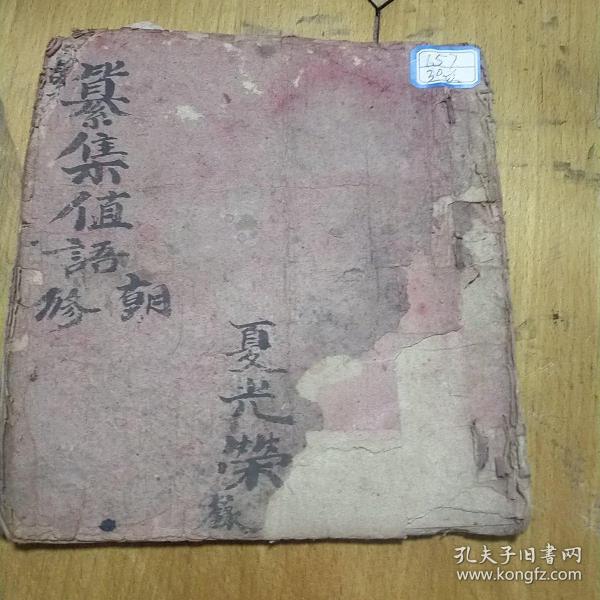 纂集值語
朝修
夏光榮
錄
157
30
孔夫子旧書网
www.kongfz.com